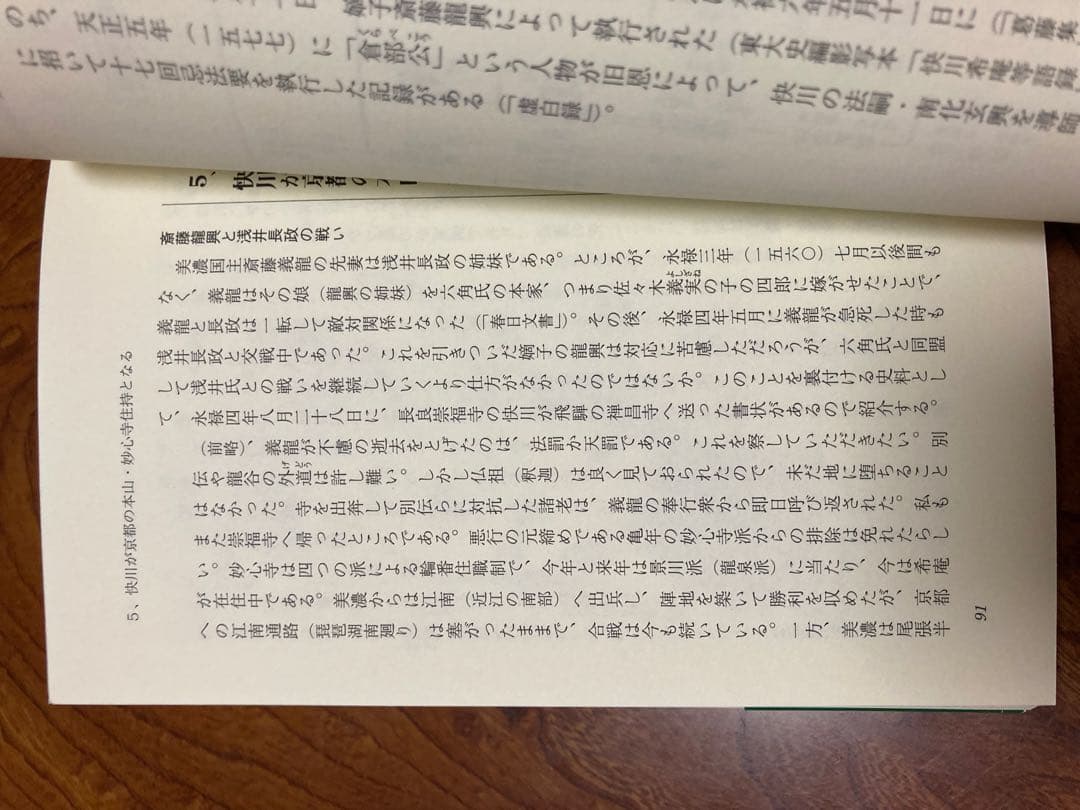 嫡子斎藤龍興によって執行された（東大史編影写本「快川希庵等語録」
のち、天正五年（一五七七）に「倉部公」という人物が日恩によって、快川の法嗣・南化玄興を導師
に招いて十七回忌法要を執行した記録がある（「虚白録」）。
斎藤龍興と浅井長政の戦い
美濃国主斎藤義龍の先妻は浅井長政の姉妹である。ところが、永禄三年（一五六〇）七月以後間も
なく、義龍はその娘（龍興の姉妹）を六角氏の本家、つまり佐々木義実の子の四郎に嫁がせたことで、
義龍と長政は一転して敵対関係になった（「春日文書」）。その後、永禄四年五月に義龍が急死した時も
浅井長政と交戦中であった。これを引きついだ嫡子の龍興は対応に苦慮しただろうが、六角氏と同盟
して浅井氏との戦いを継続していくより仕方がなかったのではないか。このことを裏付ける史料とし
て、永禄四年八月二十八日に、長良崇福寺の快川が飛騨の禅昌寺へ送った書状があるので紹介する。
（前略）、義龍が不慮の逝去をとげたのは、法罰か天罰である。これを察していただきたい。別
伝や龍谷の外道は許し難い。しかし仏祖（釈迦）は良く見ておられたので、未だ地に堕ちること
はなかった。寺を出奔して別伝らに対抗した諸老は、義龍の奉行衆から即日呼び返された。私も
また崇福寺へ帰ったところである。悪行の元締めである亀年の妙心寺派からの排除は免れたらし
い。妙心寺は四つの派による輪番住職制で、今年と来年は景川派（龍泉派）に当たり、今は希庵
が在住中である。美濃からは江南（近江の南部）へ出兵し、陣地を築いて勝利を収めたが、京都
への江南通路（琵琶湖南廻り）は塞がったままで、合戦は今も続いている。一方、美濃は尾張半
5、快川が京都の本山・妙心寺住持となる
91